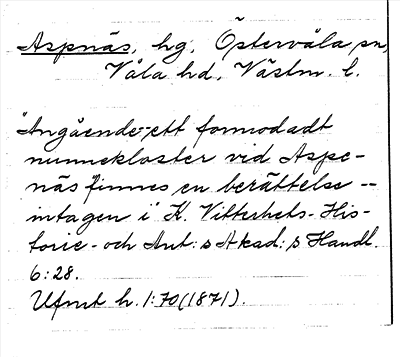 Aspnäs, hg, Östervåla sn,
Våla hd, Västm. l.
"Angående ett formodadt
nunnekloster vid Aspe-
näs finnes en berättelse --
intagen i K. Vitterhets- His-
torie- och Ant:s Akad:s Handl.
6:28.
Ufmt h. 1:70 (1871).